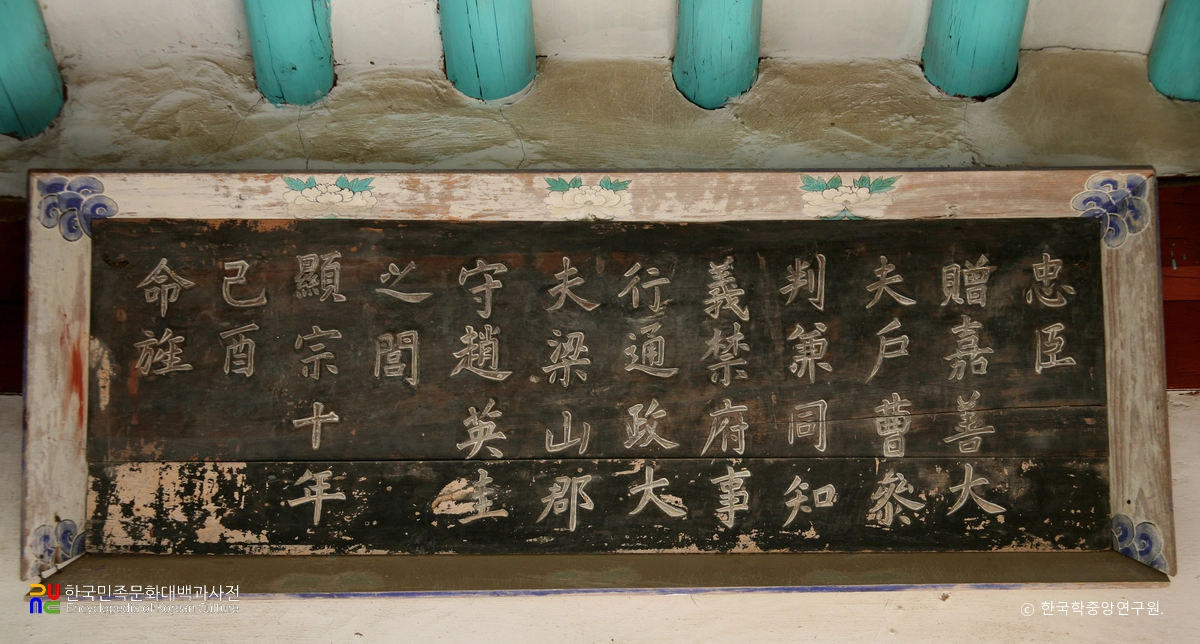 忠臣
贈嘉善大
夫戶曹叅
判兼同知
義禁府事
行通政大
夫梁山郡
守趙英圭
之閭
顯宗十年
己酉
命旌
한국민족문화대백과사전
Encyclopedia of Korean Culture
© 한국학중앙연구원.